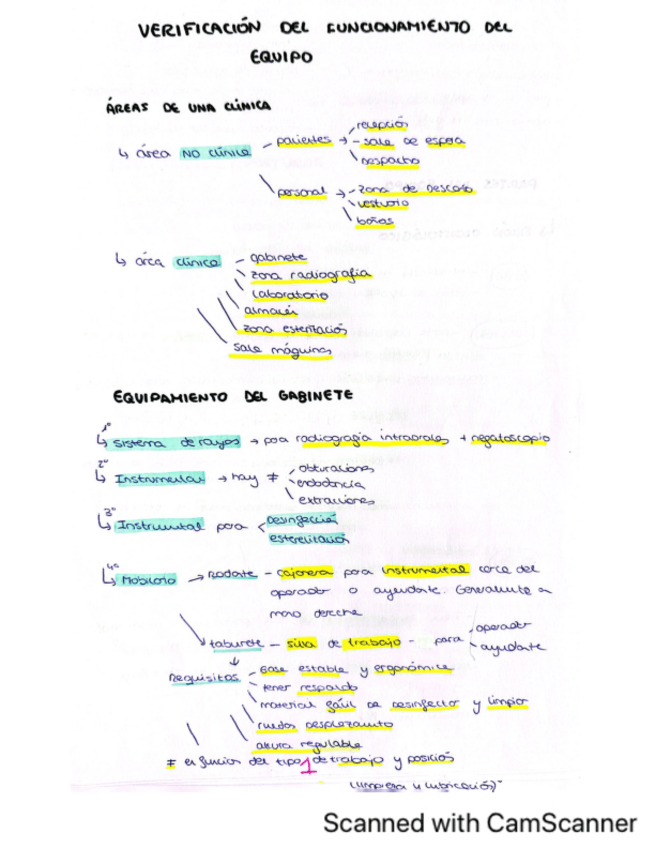 VERIFICACIÓN DEL FUNCIONAMIENTO DEL
EQUIPO
ÁREAS DE UNA CLÍNICA
↳ área NO clínica - pacientes → - recepción
- sala de espera
\ despacho
\ personal → - zona de descaso
\ vestuario
\ baños
↳ área clínica - gabinete
\ zona radiografía
\ laboratorio
\ almacén
\ zona esterilización
\ sala máquinas
EQUIPAMIENTO DEL GABINETE
1º
↳ Sistema de rayos → para radiografía intraorales + negatoscopio
2º
↳ Instrumental → hay ≠ obturaciones
- endodoncia
\ extracciones
3º
↳ Instrumental para < desinfección
esterelización
4º
↳ Mobiliario → Rodante - cajonera para instrumental cerca del
operador o ayudante. Generalmente a
mano derecha
taburete - silla de trabajo - para - operador
\ ayudante
↓
Requisitos - Base estable y ergonómica
- tener respaldo
\ material fácil de desinfectar y limpiar
\ ruedas desplazamiento
\ altura regulable
≠ en función del tipo de trabajo y posición
1
(limpieza y lubricación)
Scanned with CamScanner